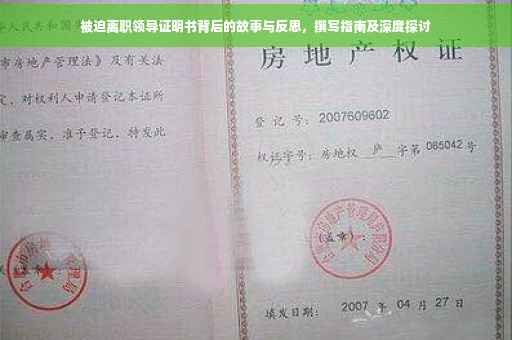 被迫离职领导证明书背后的故事与反思，撰写指南及深度探讨
人民共和国
市房地产管理法》及有关法
定，对权利人申请登记本证所
审查属实，准予登记，特发此
房地产权证
登记号：2007609602
权证字号：房地权 庐 字第 085042 号
(盖章)：
填发日期： 2007 年 04 月 27 日